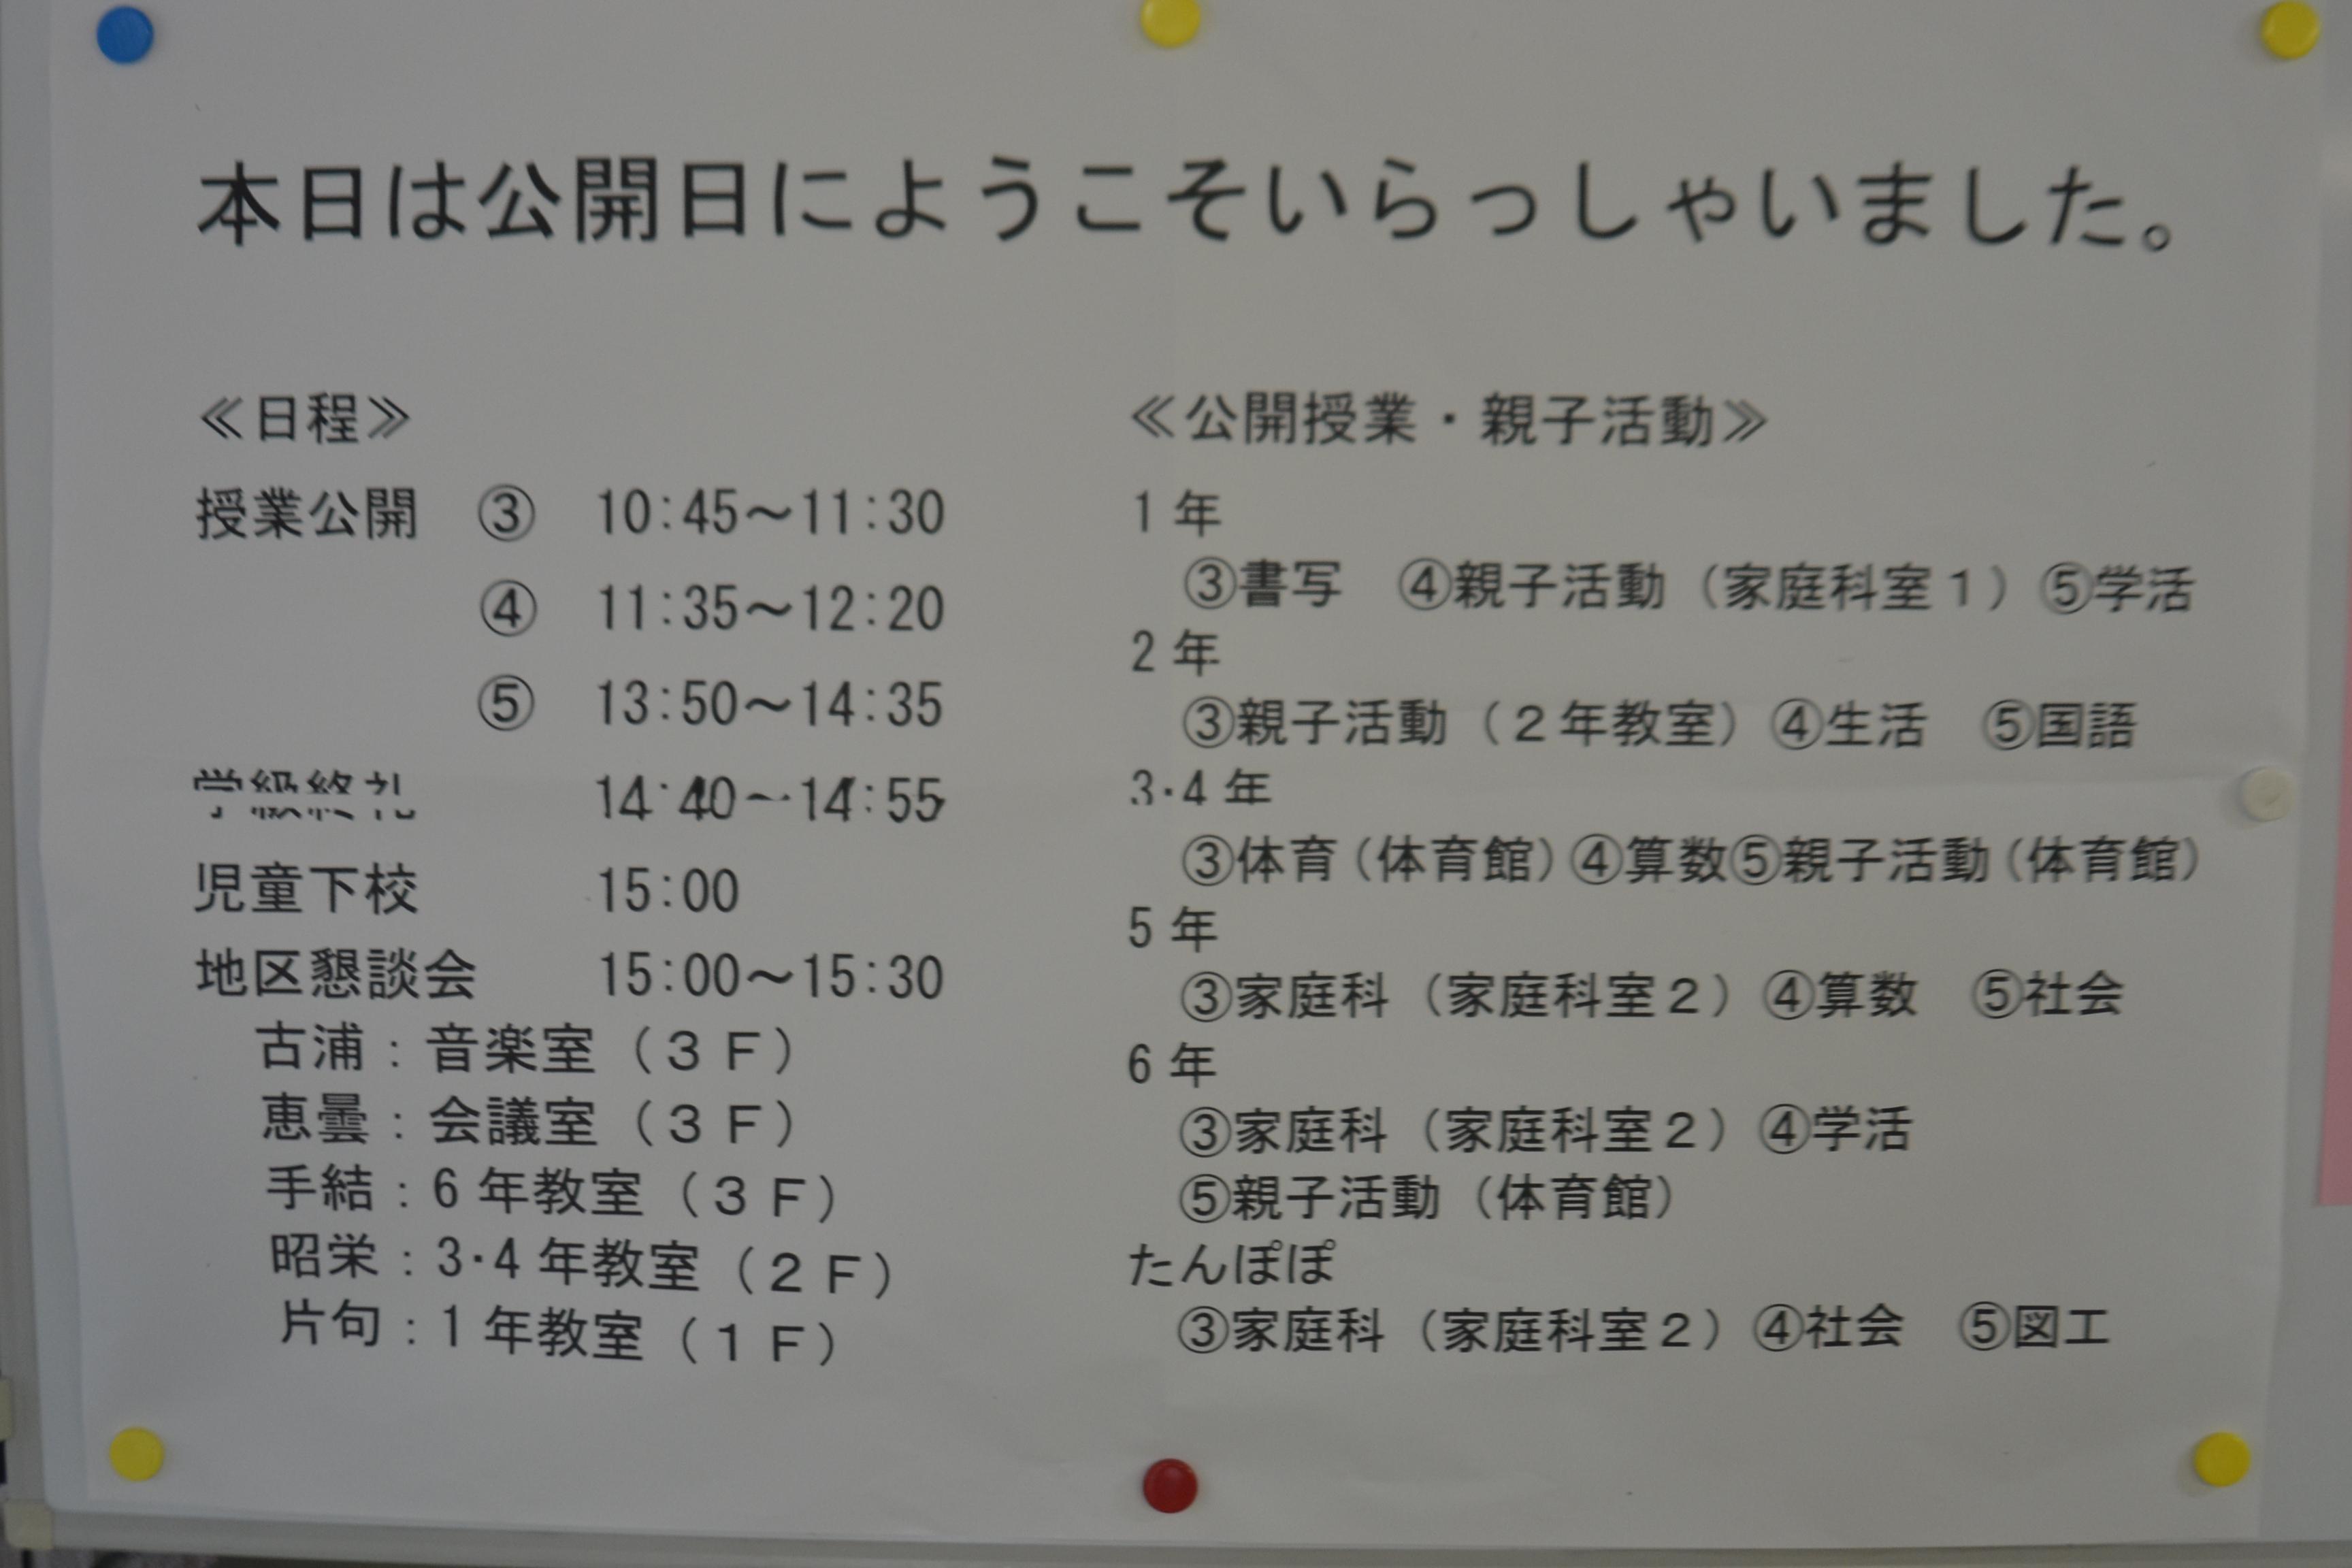 本日は公開日にようこそいらっしゃいました。
≪日程≫
授業公開　③　10:45～11:30
④　11:35～12:20
⑤　13:50～14:35
学級終礼　14:40～14:55
児童下校　15:00
地区懇談会　15:00～15:30
古浦：音楽室（３Ｆ）
恵曇：会議室（３Ｆ）
手結：6年教室（３Ｆ）
昭栄：3･4年教室（２Ｆ）
片句：1年教室（１Ｆ）
≪公開授業・親子活動≫
1年
③書写　④親子活動（家庭科室１）⑤学活
2年
③親子活動（２年教室）④生活　⑤国語
3･4年
③体育(体育館)④算数⑤親子活動(体育館)
5年
③家庭科（家庭科室２）④算数　⑤社会
6年
③家庭科（家庭科室２）④学活
⑤親子活動（体育館）
たんぽぽ
③家庭科（家庭科室２）④社会　⑤図工